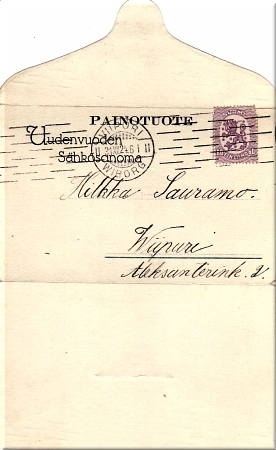 PAINOTUOTE
VIIPURI
31.XII.24.6 I
WIBORG
Uudenvuoden
Sähkösanoma
Hilkka Sauramo.
Wiipuri
Aleksanterink.